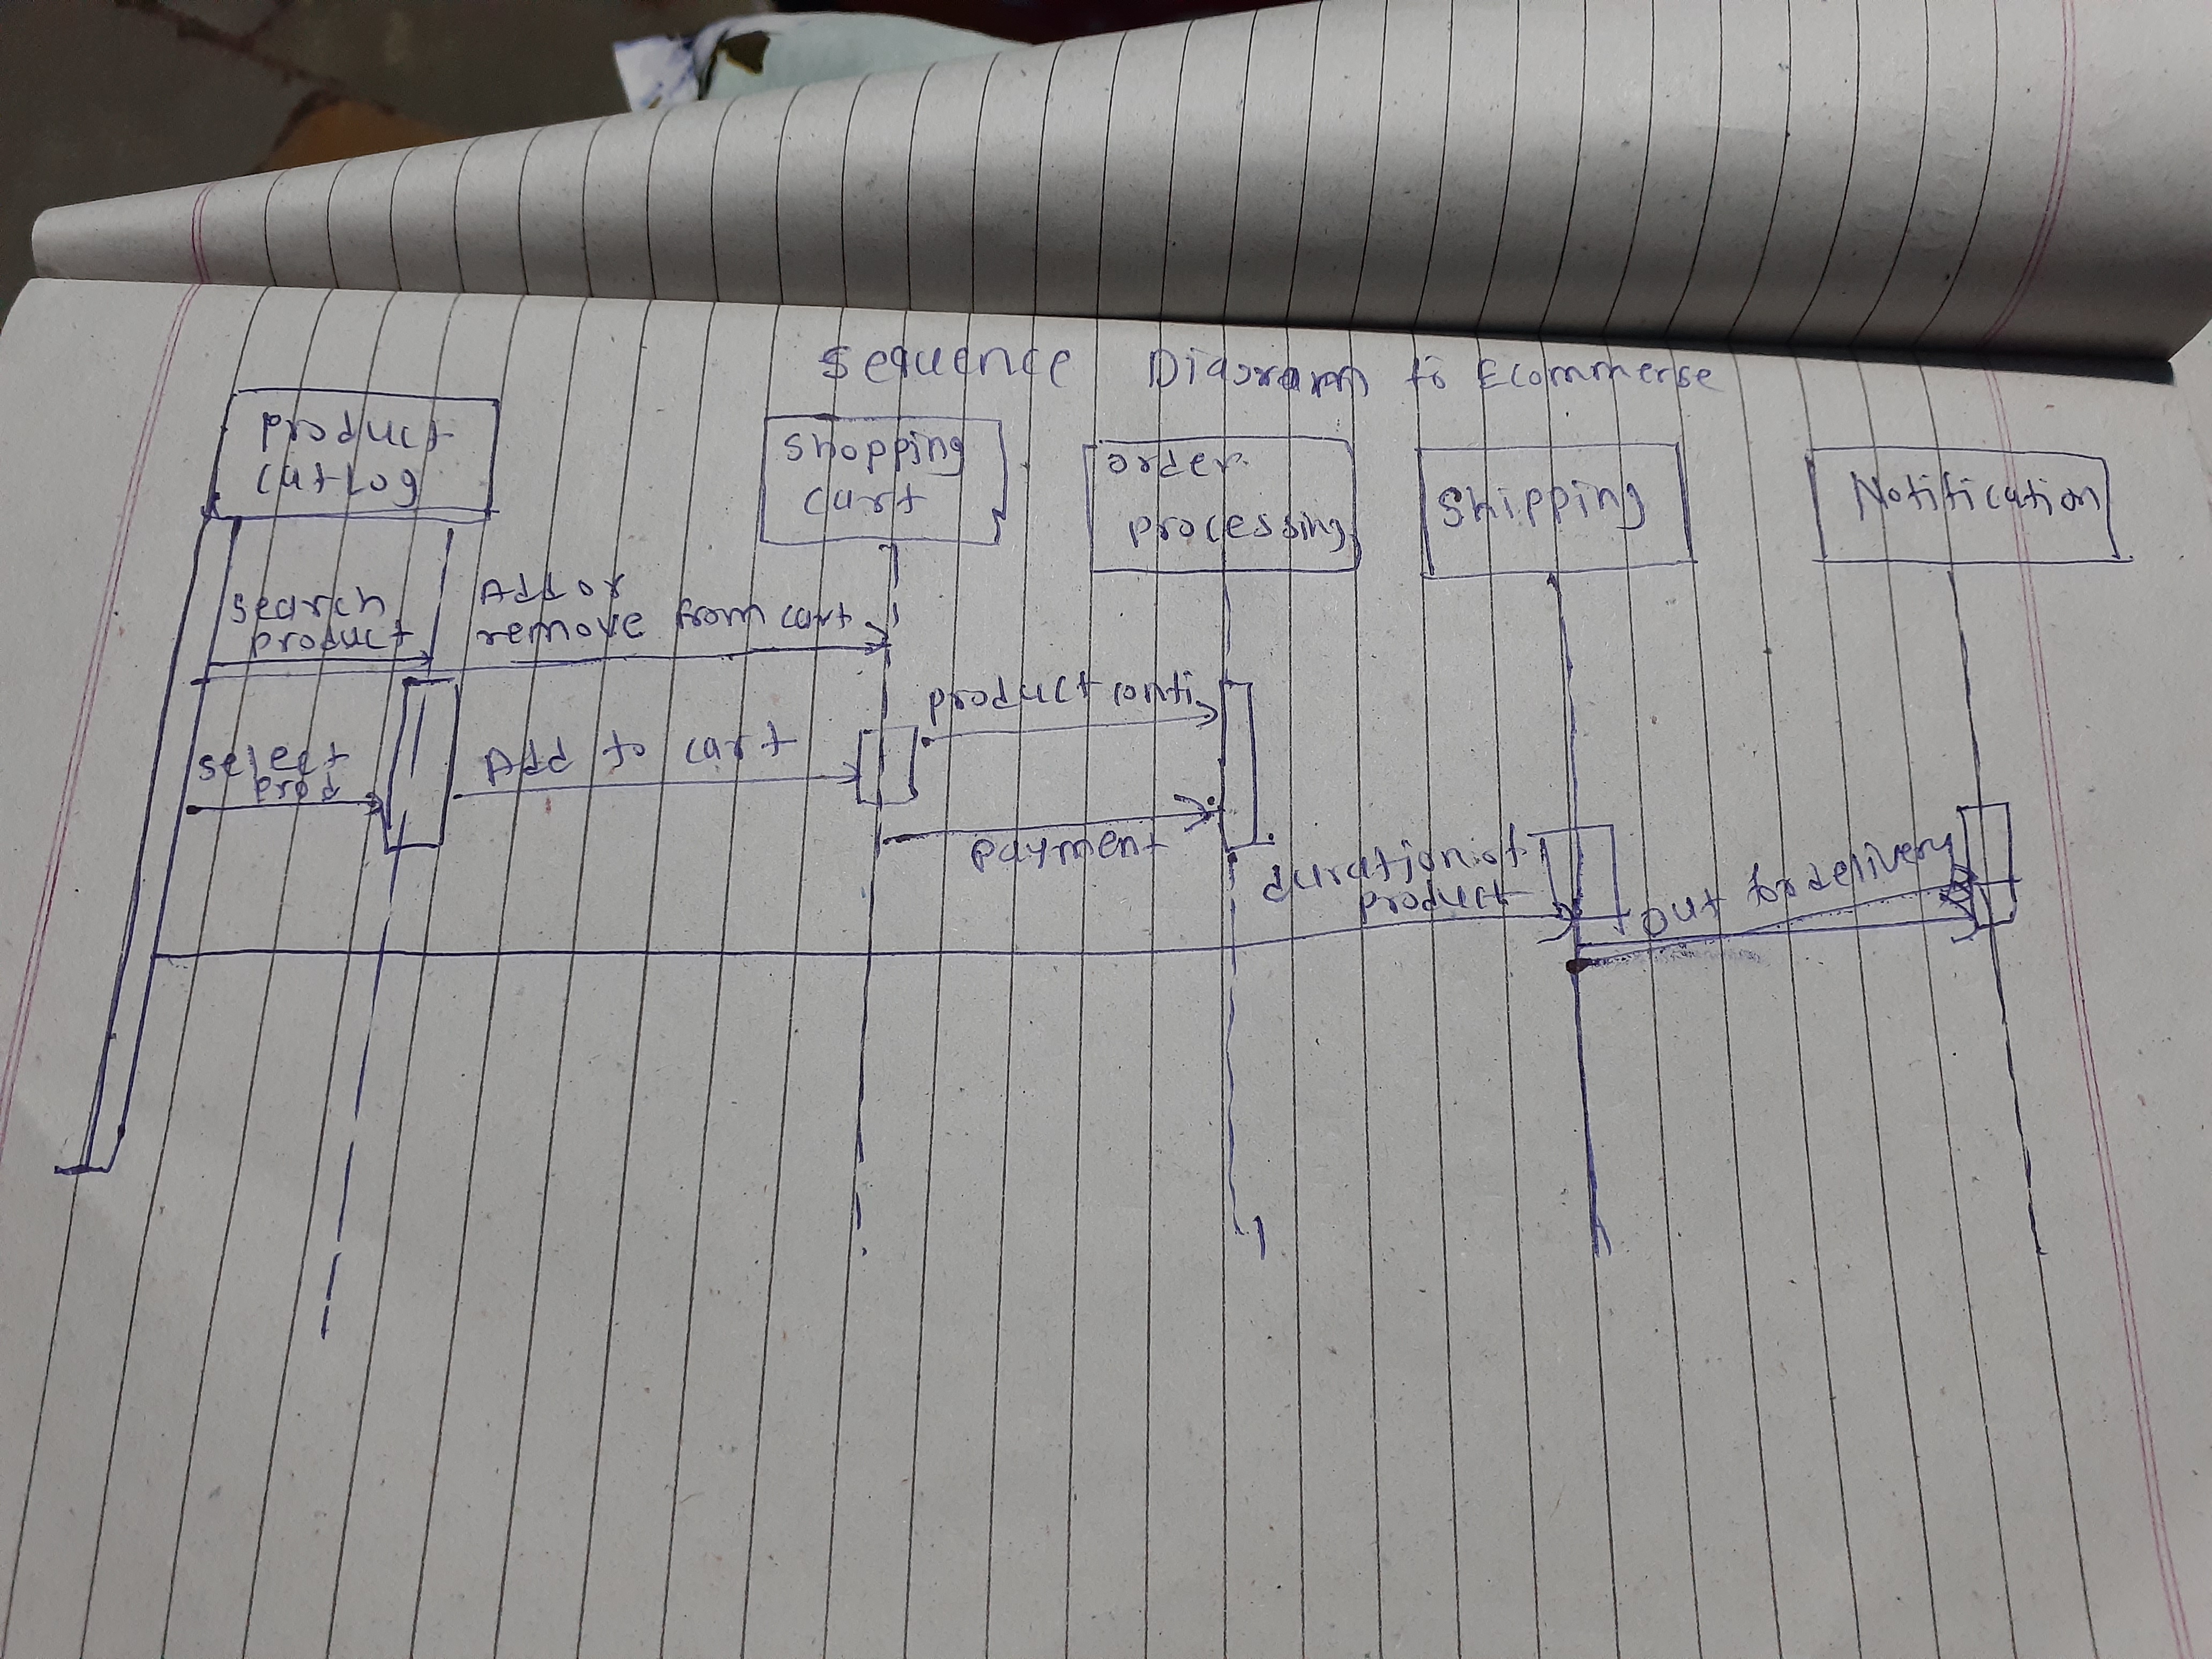 Sequence Diagram to Ecommerse
product
catlog
shopping
cart
order
processing
Shipping
Notification
search
product
Add or
remove from cart
product confi
select
prod
Add to cart
payment
duration of
product
out for delivery